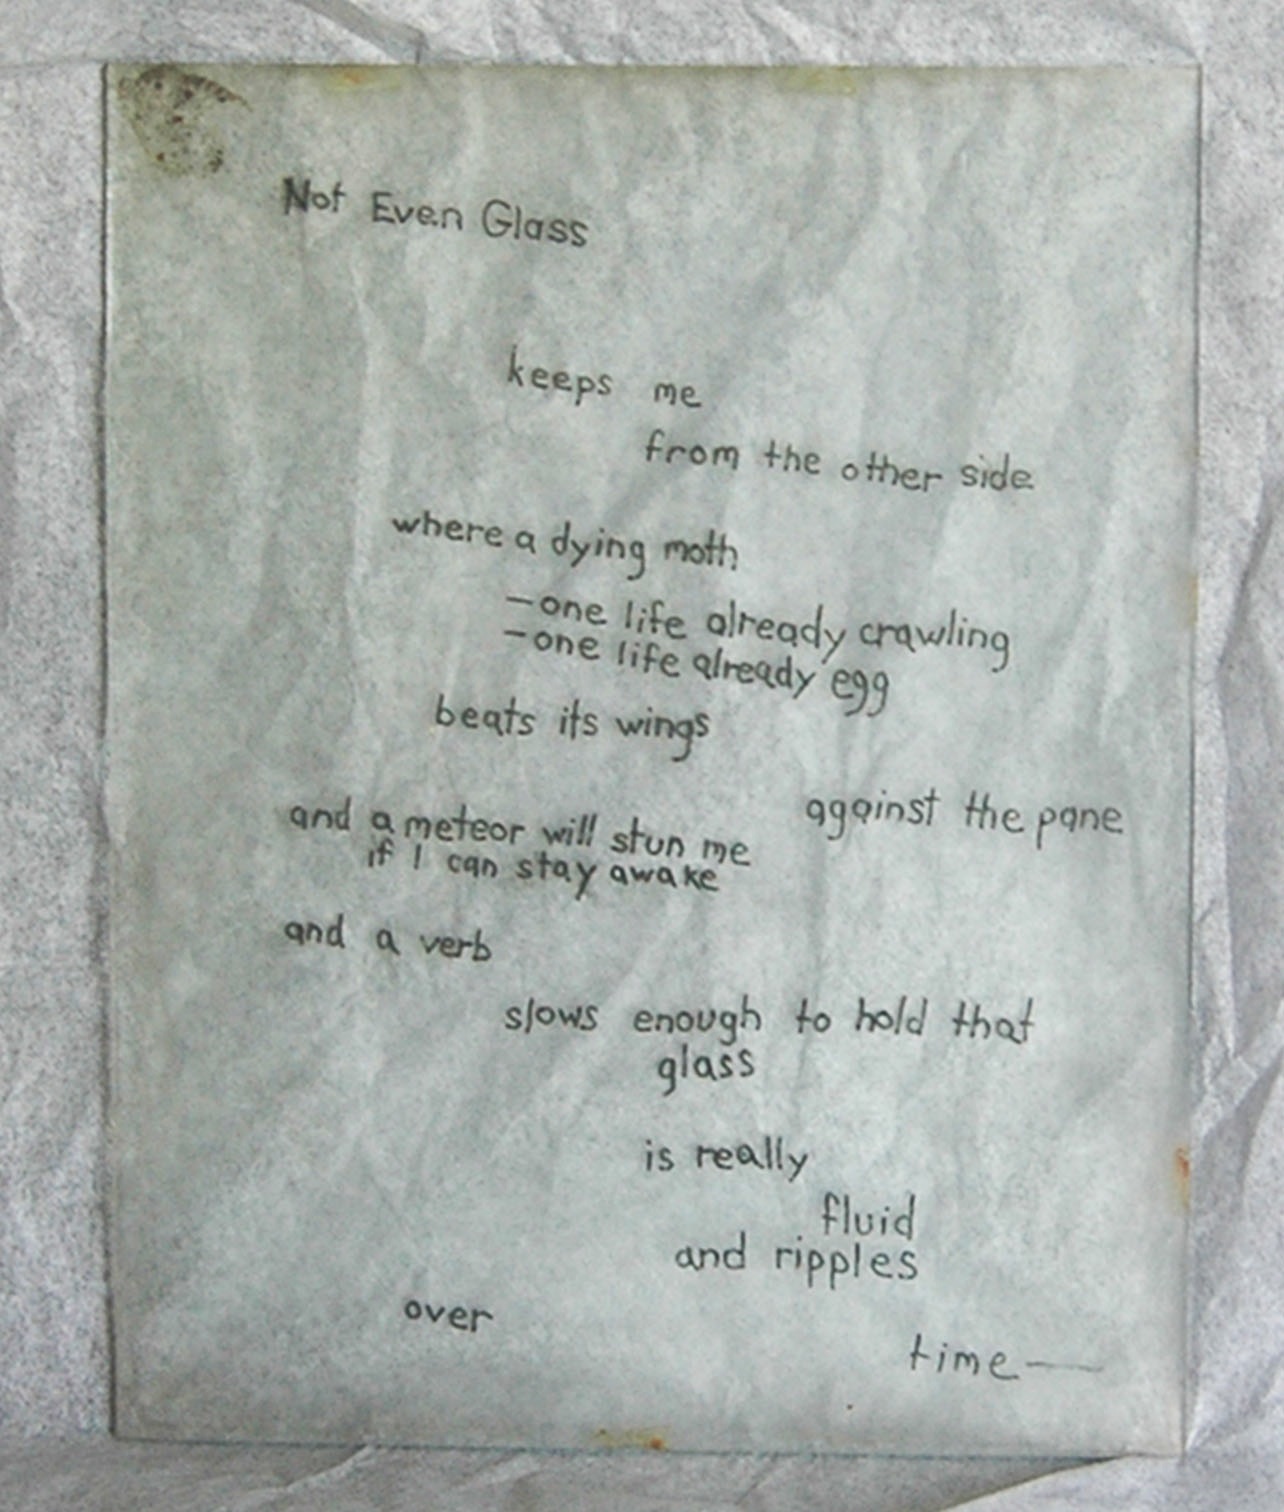 Not Even Glass
keeps me
from the other side
where a dying moth
—one life already crawling
—one life already egg
beats its wings
against the pane
and a meteor will stun me
if I can stay awake
and a verb
slows enough to hold that
glass
is really
fluid
and ripples
over
time—